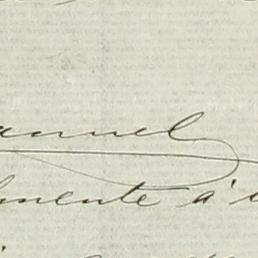 anuel
lmente á